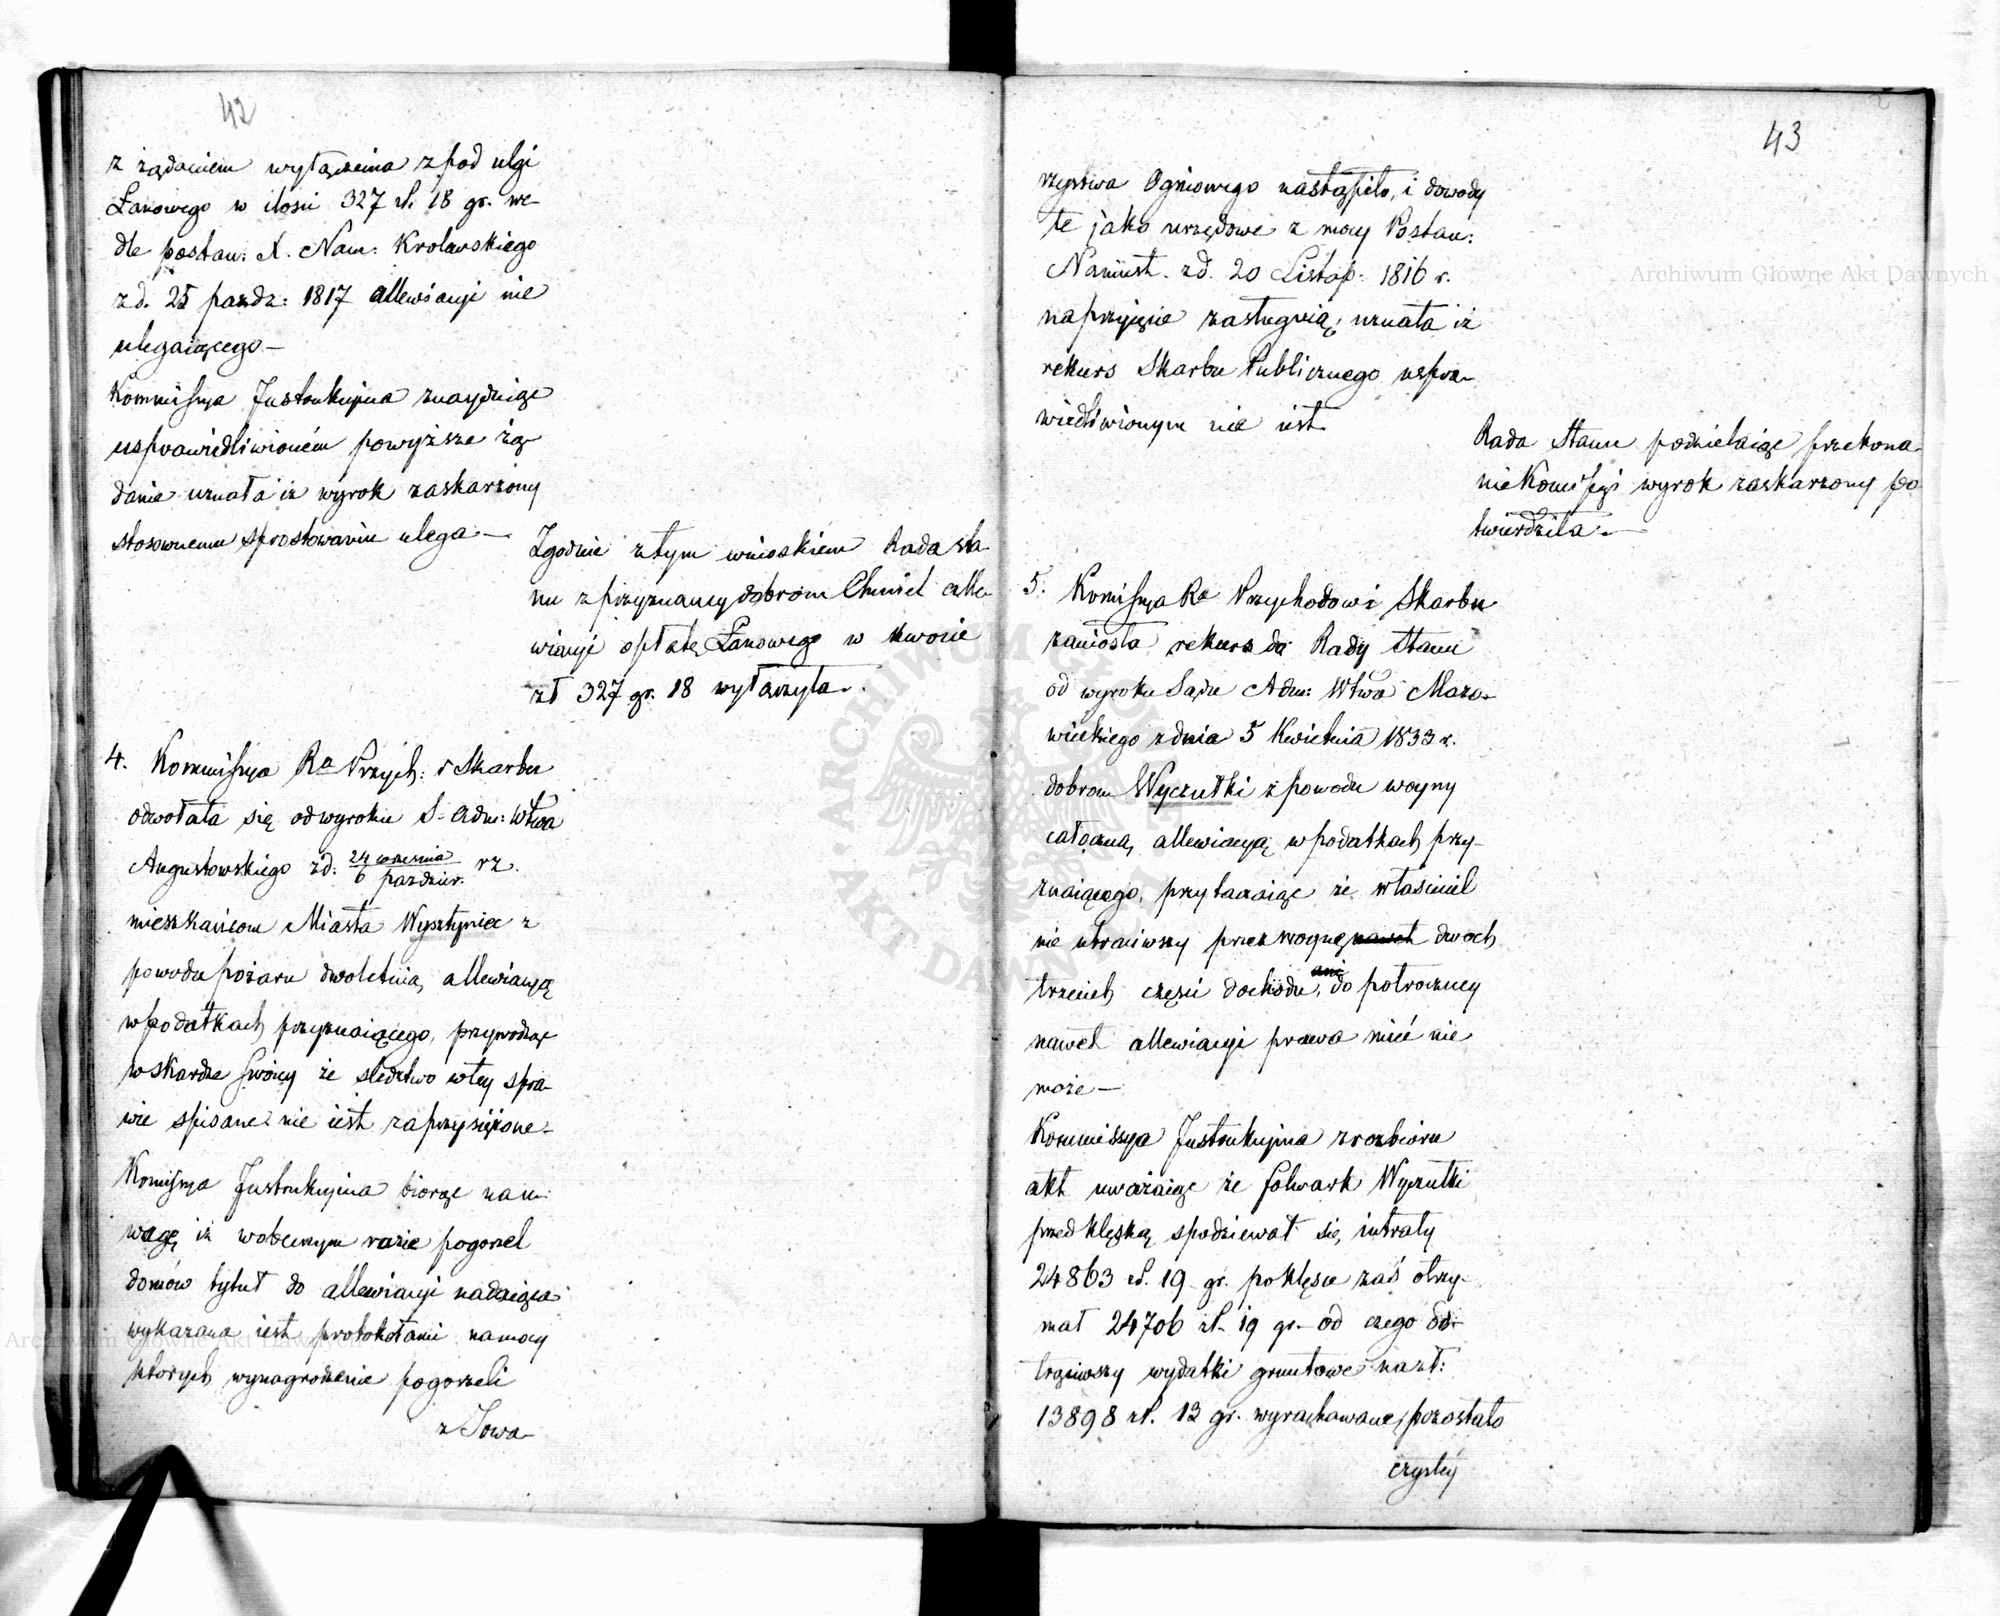 42
z żądaniem wyłączenia z pod ulgi
Łanowego w ilości 327 zł. 18 gr. we-
dle postan: X. Nam: Krolewskiego
z d. 25 pazdz: 1817 allewiacyi nie
ulegaiącego —
Kommissya Instrukcyjna znayduiąc
usprawiedliwionem powyższe żą-
danie uznała iż wyrok zaskarżony
stosownemu sprostowaniu ulega —
Zgodnie z tym wnioskiem Rada Sta-
nu z przyznaney dobrom Chmiel alle-
wiacyi opłatę Łanowego w kwocie
zł 327 gr. 18 wyłączyła.
4. Kommissya Ra Przych: i Skarbu
odwołała się od wyroku S. Adm: Wtwa
Augustowskiego z d. 24 września / 6 pazdzier. rz.
mieszkańcom Miasta Wysztyniec z
powodu pożaru dwoletnią allewiacyą
w podatkach przyznaiącego, przywodząc
w skardze swoiey że śledztwo w tey spra-
wie spisane nie iest zaprzysiężone.
Komissya Instrukcyina biorąc na u-
wagę iż w obecnym razie pogorzel
domów tytuł do allewiacyi nadaiąca
wykazana iest protokołami na mocy
których wynagrodzenie pogorzeli
z Towa-
43
rzystwa Ogniowego nastąpiło, i dowody
te jako urzędowe z mocy Postan:
Namiest. z d. 20 Listop. 1816 r.
na przyięcie zasługuią; uznała iż
rekurs Skarbu Publicznego uspra-
wiedliwionym nie iest.
Rada Stanu podzielaiąc przekona-
nie Komissyi wyrok zaskarżony po-
twierdziła. —
5. Komissya Ra Przychodów i Skarbu
zaniosła rekurs do Rady Stanu
od wyroku Sądu Adm: Wtwa Mazo-
wieckiego z dnia 5 Kwietnia 1833 r.
dobrom Wyczułki z powodu woyny
całoczną allewiacyą w podatkach przy-
znaiącego, przytaczaiąc że właściciel
nie utraciwszy przez woynę nawet dwoch
trzecich części dochodu, ani do połroczney
nawet allewiacyi prawa mieć nie
może —
Kommissya Instrukcyina z rozbioru
akt uważaiąc że folwark Wyczułki
przed klęską spodziewał się intraty
24863 zł. 19 gr. po klęsce zaś otrzy-
mał 24706 zł. 19 gr. od czego od-
trąciwszy wydatki gruntowe na zł:
13898 zł. 12 gr. wyrachowane, pozostało
czystey
Archiwum Główne Akt Dawnych
Archiwum Główne Akt Dawnych
ARCHIWUM GŁÓWNE
AKT DAWNYCH